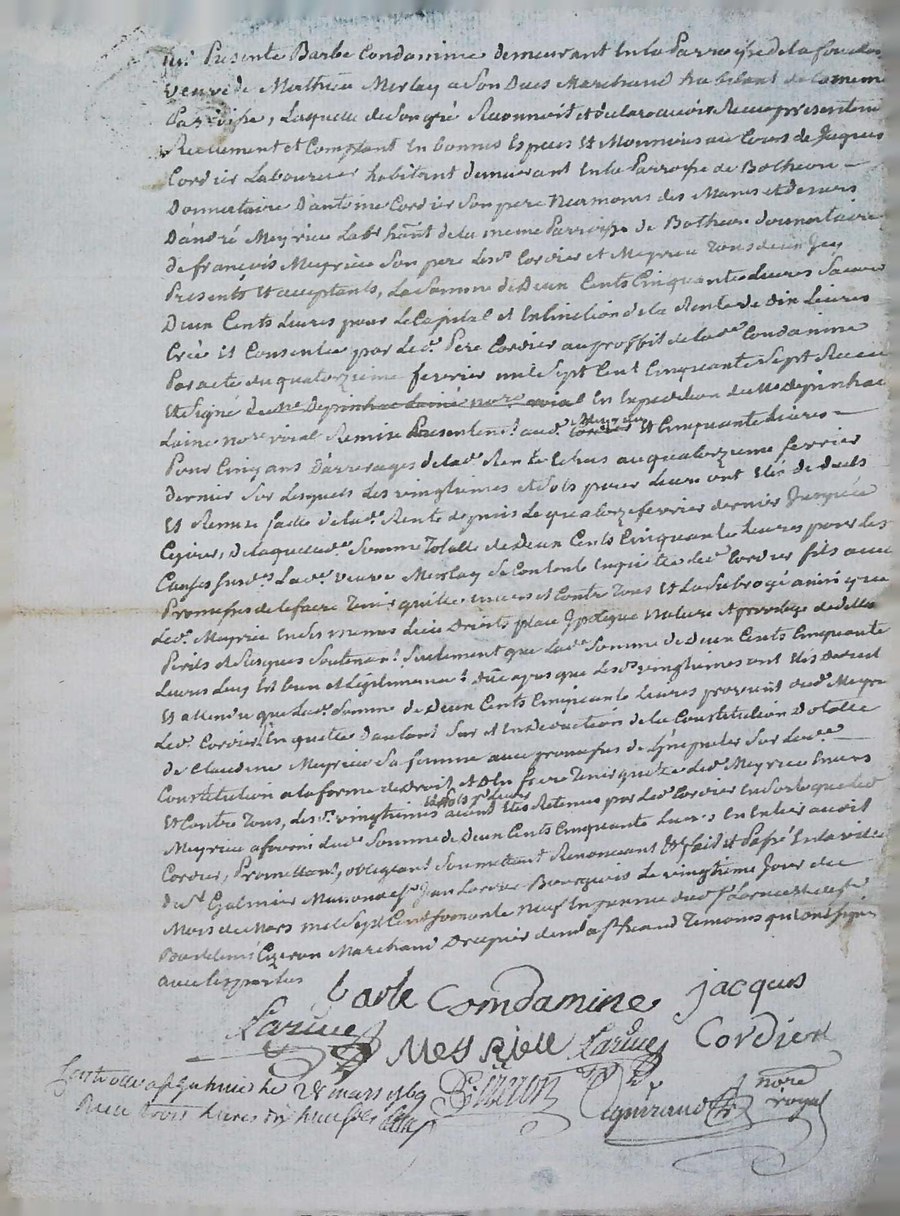 Presente Barbe Condamine demeurant En la Parroisse de la
veuve de Mathieu Merlay a Son Dues Marchand habitant de la meme
Parroisse, Laquelle de Son gré Reconnoit et declare avoir Receu présentem
Reelement et Comptant En bonnes Especes Et Monnoies au Cours de Jacques
Cordier Laboureur habitant demeurant En la Parroisse de Botheon
Donnataire D'antoine Cordier Son pere Neamoins des Mains et deniers
D'andré Meyrieu Labr habt de la meme Parroisse de Botheon donnataire
de francois Meyrieu Son pere Lesd. Cordier et Meyrieu Tous deux Icy
Presents Et acceptants, La Somme de Deux Cents Cinquante Livres Savoir
Deux Cents Livres pour Le Capital et Extinction de la Rente de Dix Livres
Créé Et Consentie par Led. Pere Cordier au proffit de lad. Condamine
Par acte du quatorzieme fevrier mil Sept Cent Cinquante Sept Receu
Et Signé En Expedition du Me Deprinhac
Laine nore Remise Presentemt aud. Meyrieu Et Cinquante Livres
Pour Cinq ans D'arrerages de lad. Rente Echus au quatorzieme fevrier
dernier Sur Lesquels Les vingtiemes et Sols pour Livre ont Eté deduits
Et Remise faite de lad. Rente depuis Le quatorze fevrier dernier Jusqu'a
Ce jour, De laquelle d. Somme Totalle de Deux Cents Cinquante Livres pour les
Causes Susd. Lad. veuve Merlay Se Contente En quitte Led. Cordier fils avec
Promesses de le faire Tenir quitte Envers et Contre Tous Et La Subrogé ainsi que
Led. Meyrieu En Ses memes Lieu Droits place Ipoteque Nature Et privilege
Perils et Risques Soutenant Seulement que Lad. Somme de Deux Cents Cinquante
Livres Luy Est bien et Legitimement Due apres que Lesd. vingtiemes ont Etés deduit
Et attendu que Lad. Somme de Deux Cents Cinquante Livres provient dud. Meyrieu
Led. Cordier En quitte d'autant Sur Et En Deduction de la Constitution Dotalle
de Claudine Meyrieu Sa femme avec promesses de Sur Lad.
Constitution a la forme de Droit, et D'En faire Tenir quitte Led. Meyrieu Envers
Et Contre Tous, Lesd. vingtiemes et Sols pr Livre aient Etés Retenus par Led. Cordier En Sorte que Led.
Meyrieu a fourni Lad. Somme de Deux Cents Cinquante Livres En Entier audit
Cordier, Promettant, obligeant Soumettant Renonceant Et fait et Passé En la ville
de St Galmier Maison de Sr Jean Larüe Bourgeois Le vingtieme Jour du
Mois de Mars mil Sept Cent Soixante Neuf En presence dud. Sr Larüe et de Sr
Barthelemi Cizeron Marchand Drapier de St Temoins qui ont Signé
avec les parties
barbe Comdamine jacques
Larüe Meyrieu Larüe Cordier
Controllé a St Galmier le 28 mars 1769 Cizeron
Receu trois livres dix huit sols nore royal